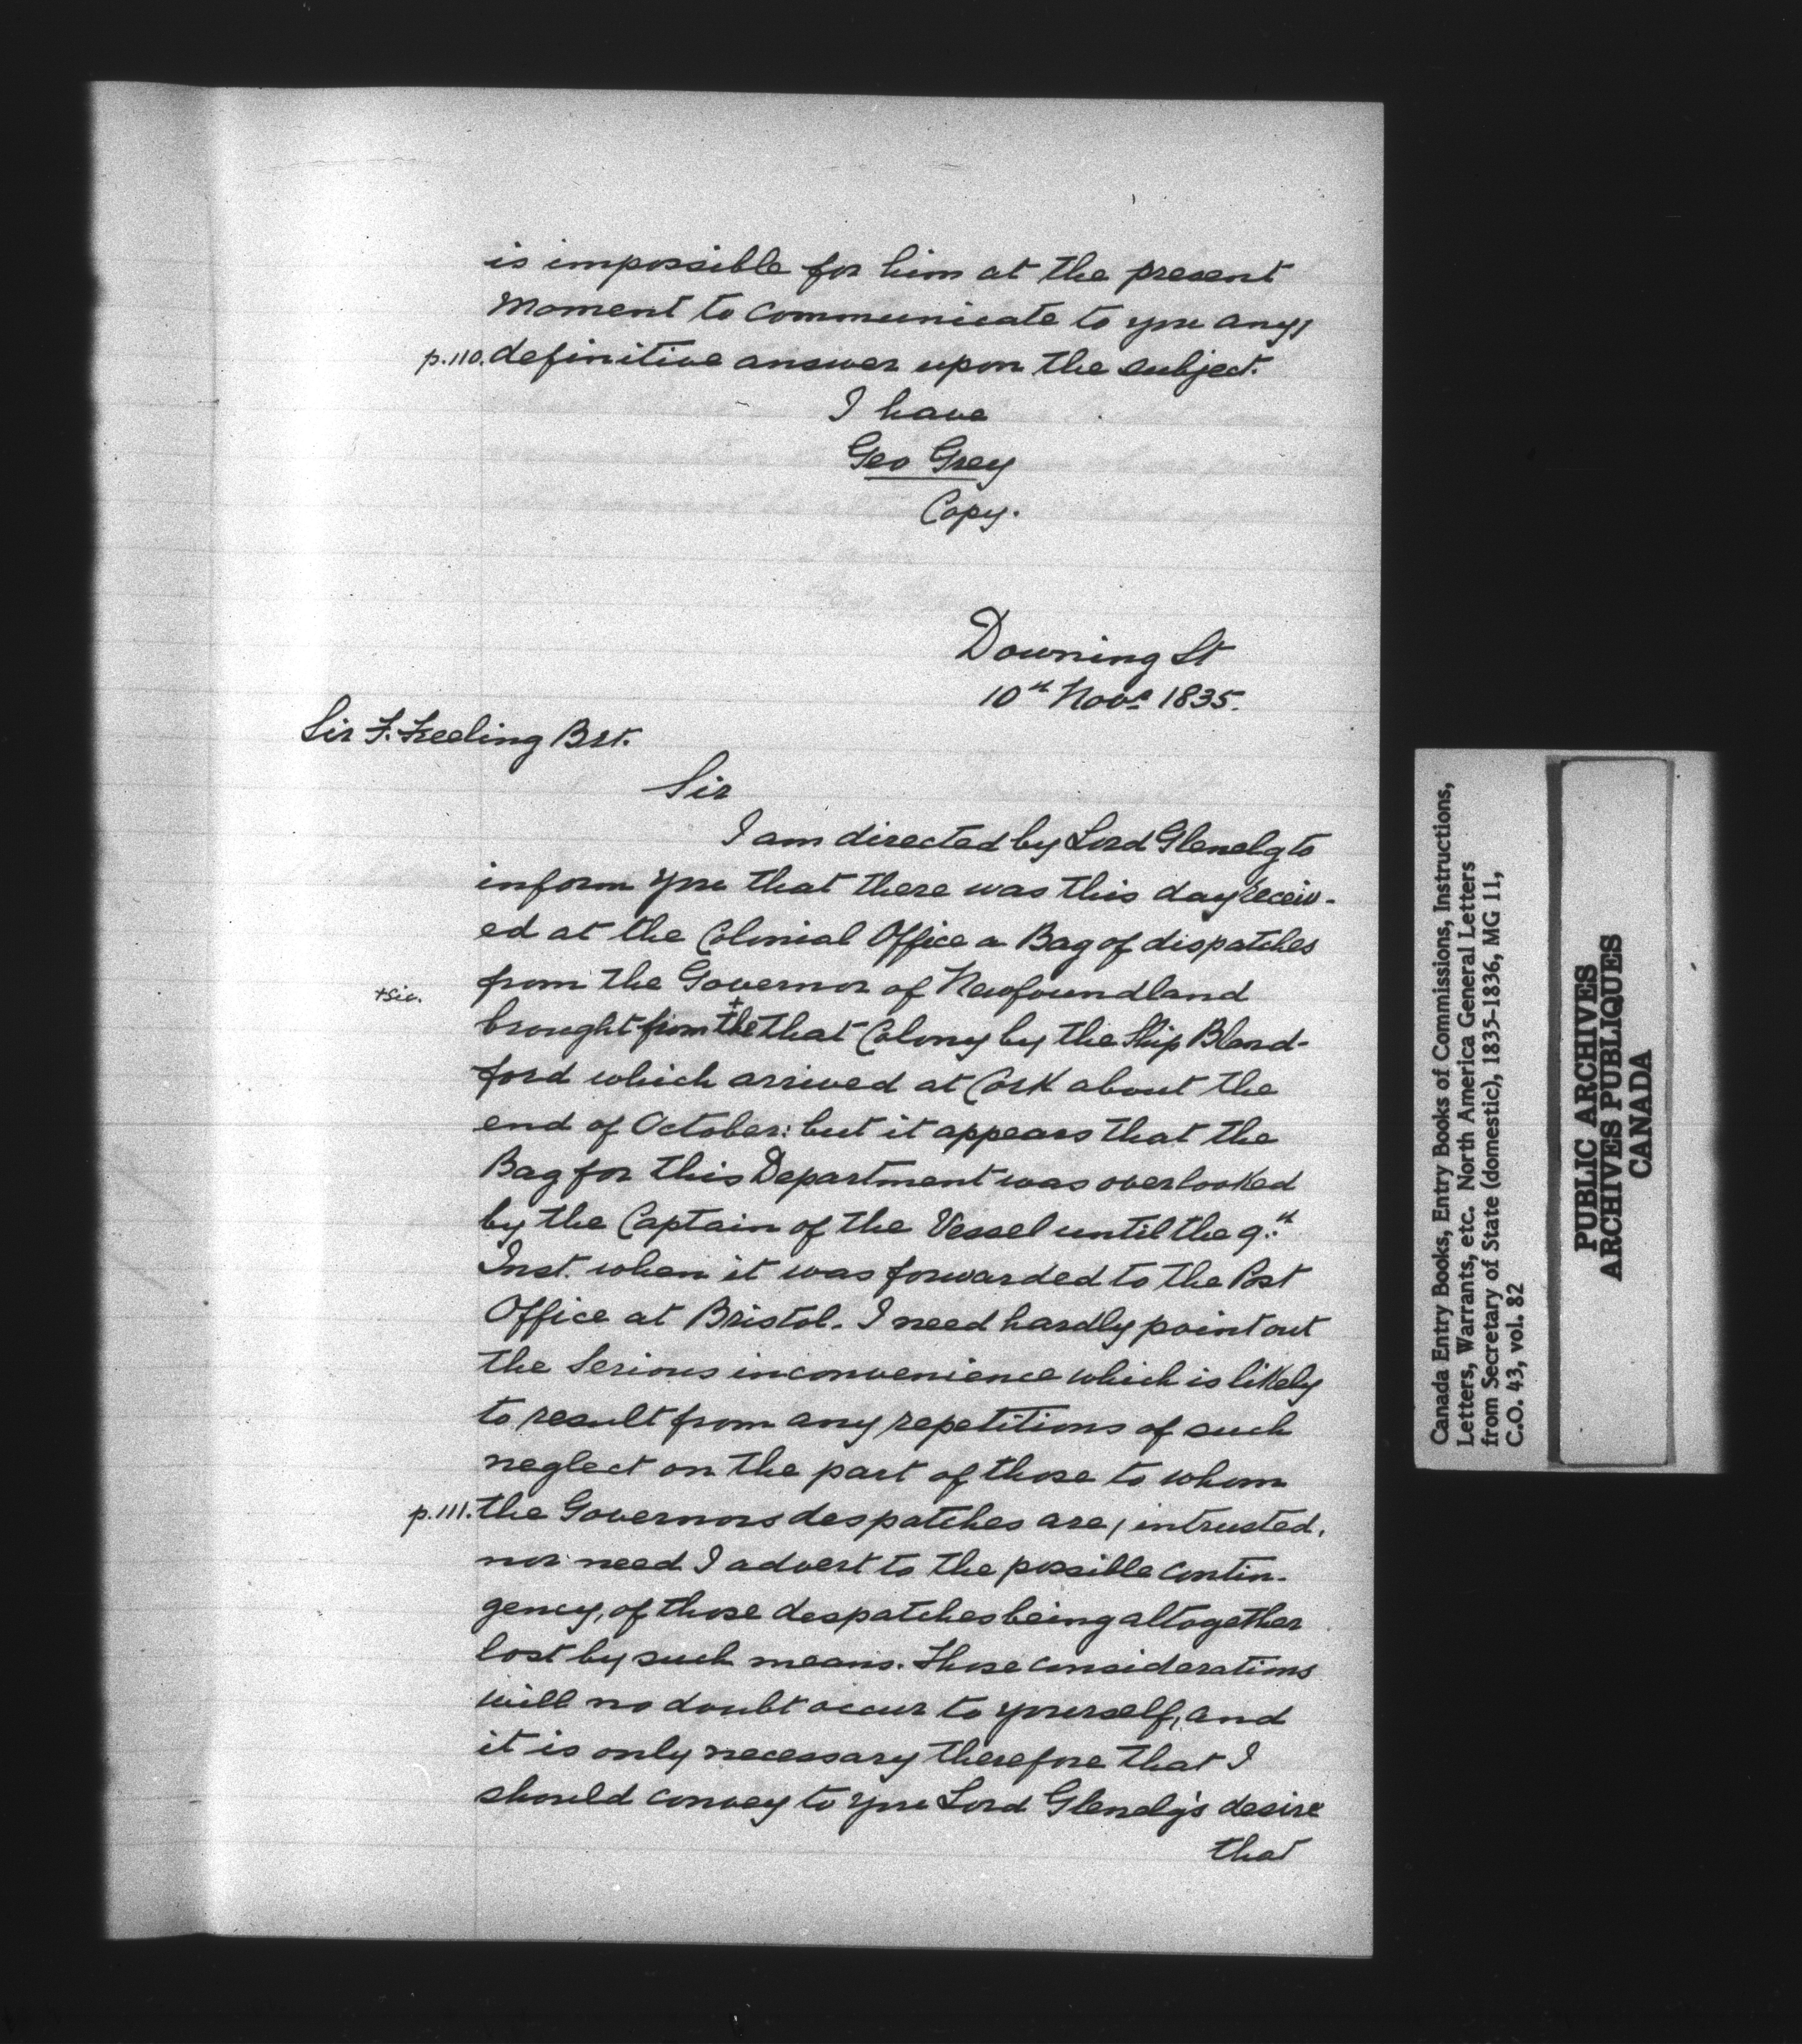 is impossible for him at the present
Moment to communicate to you any/
p.110. definitive answer upon the subject.
I have
Geo Grey
Copy.
Downing St
10th Novr 1835.
Sir F. Freeling Brt.
Sir
I am directed by Lord Glenelg to
inform you that there was this day receiv-
ed at the Colonial Office a Bag of dispatches
from the Governor of Newfoundland
+sic. brought from the+ that Colony by the Ship Bland-
ford which arrived at Cork about the
end of October: but it appears that the
Bag for this Department was overlooked
by the Captain of the Vessel until the 9th
Inst. when it was forwarded to the Post
Office at Bristol. I need hardly point out
the Serious inconvenience which is likely
to result from any repetitions of such
neglect on the part of those to whom
p.111. the Governors despatches are / intrusted,
nor need I advert to the possible contin-
gency, of those despatches being altogether
lost by such means. Those considerations
will no doubt occur to yourself, and
it is only necessary therefore that I
should convey to you Lord Glenelg's desire
that
Canada Entry Books, Entry Books of Commissions, Instructions,
Letters, Warrants, etc. North America General Letters
from Secretary of State (domestic), 1835-1836, MG 11,
C.O. 43, vol. 82
PUBLIC ARCHIVES
ARCHIVES PUBLIQUES
CANADA